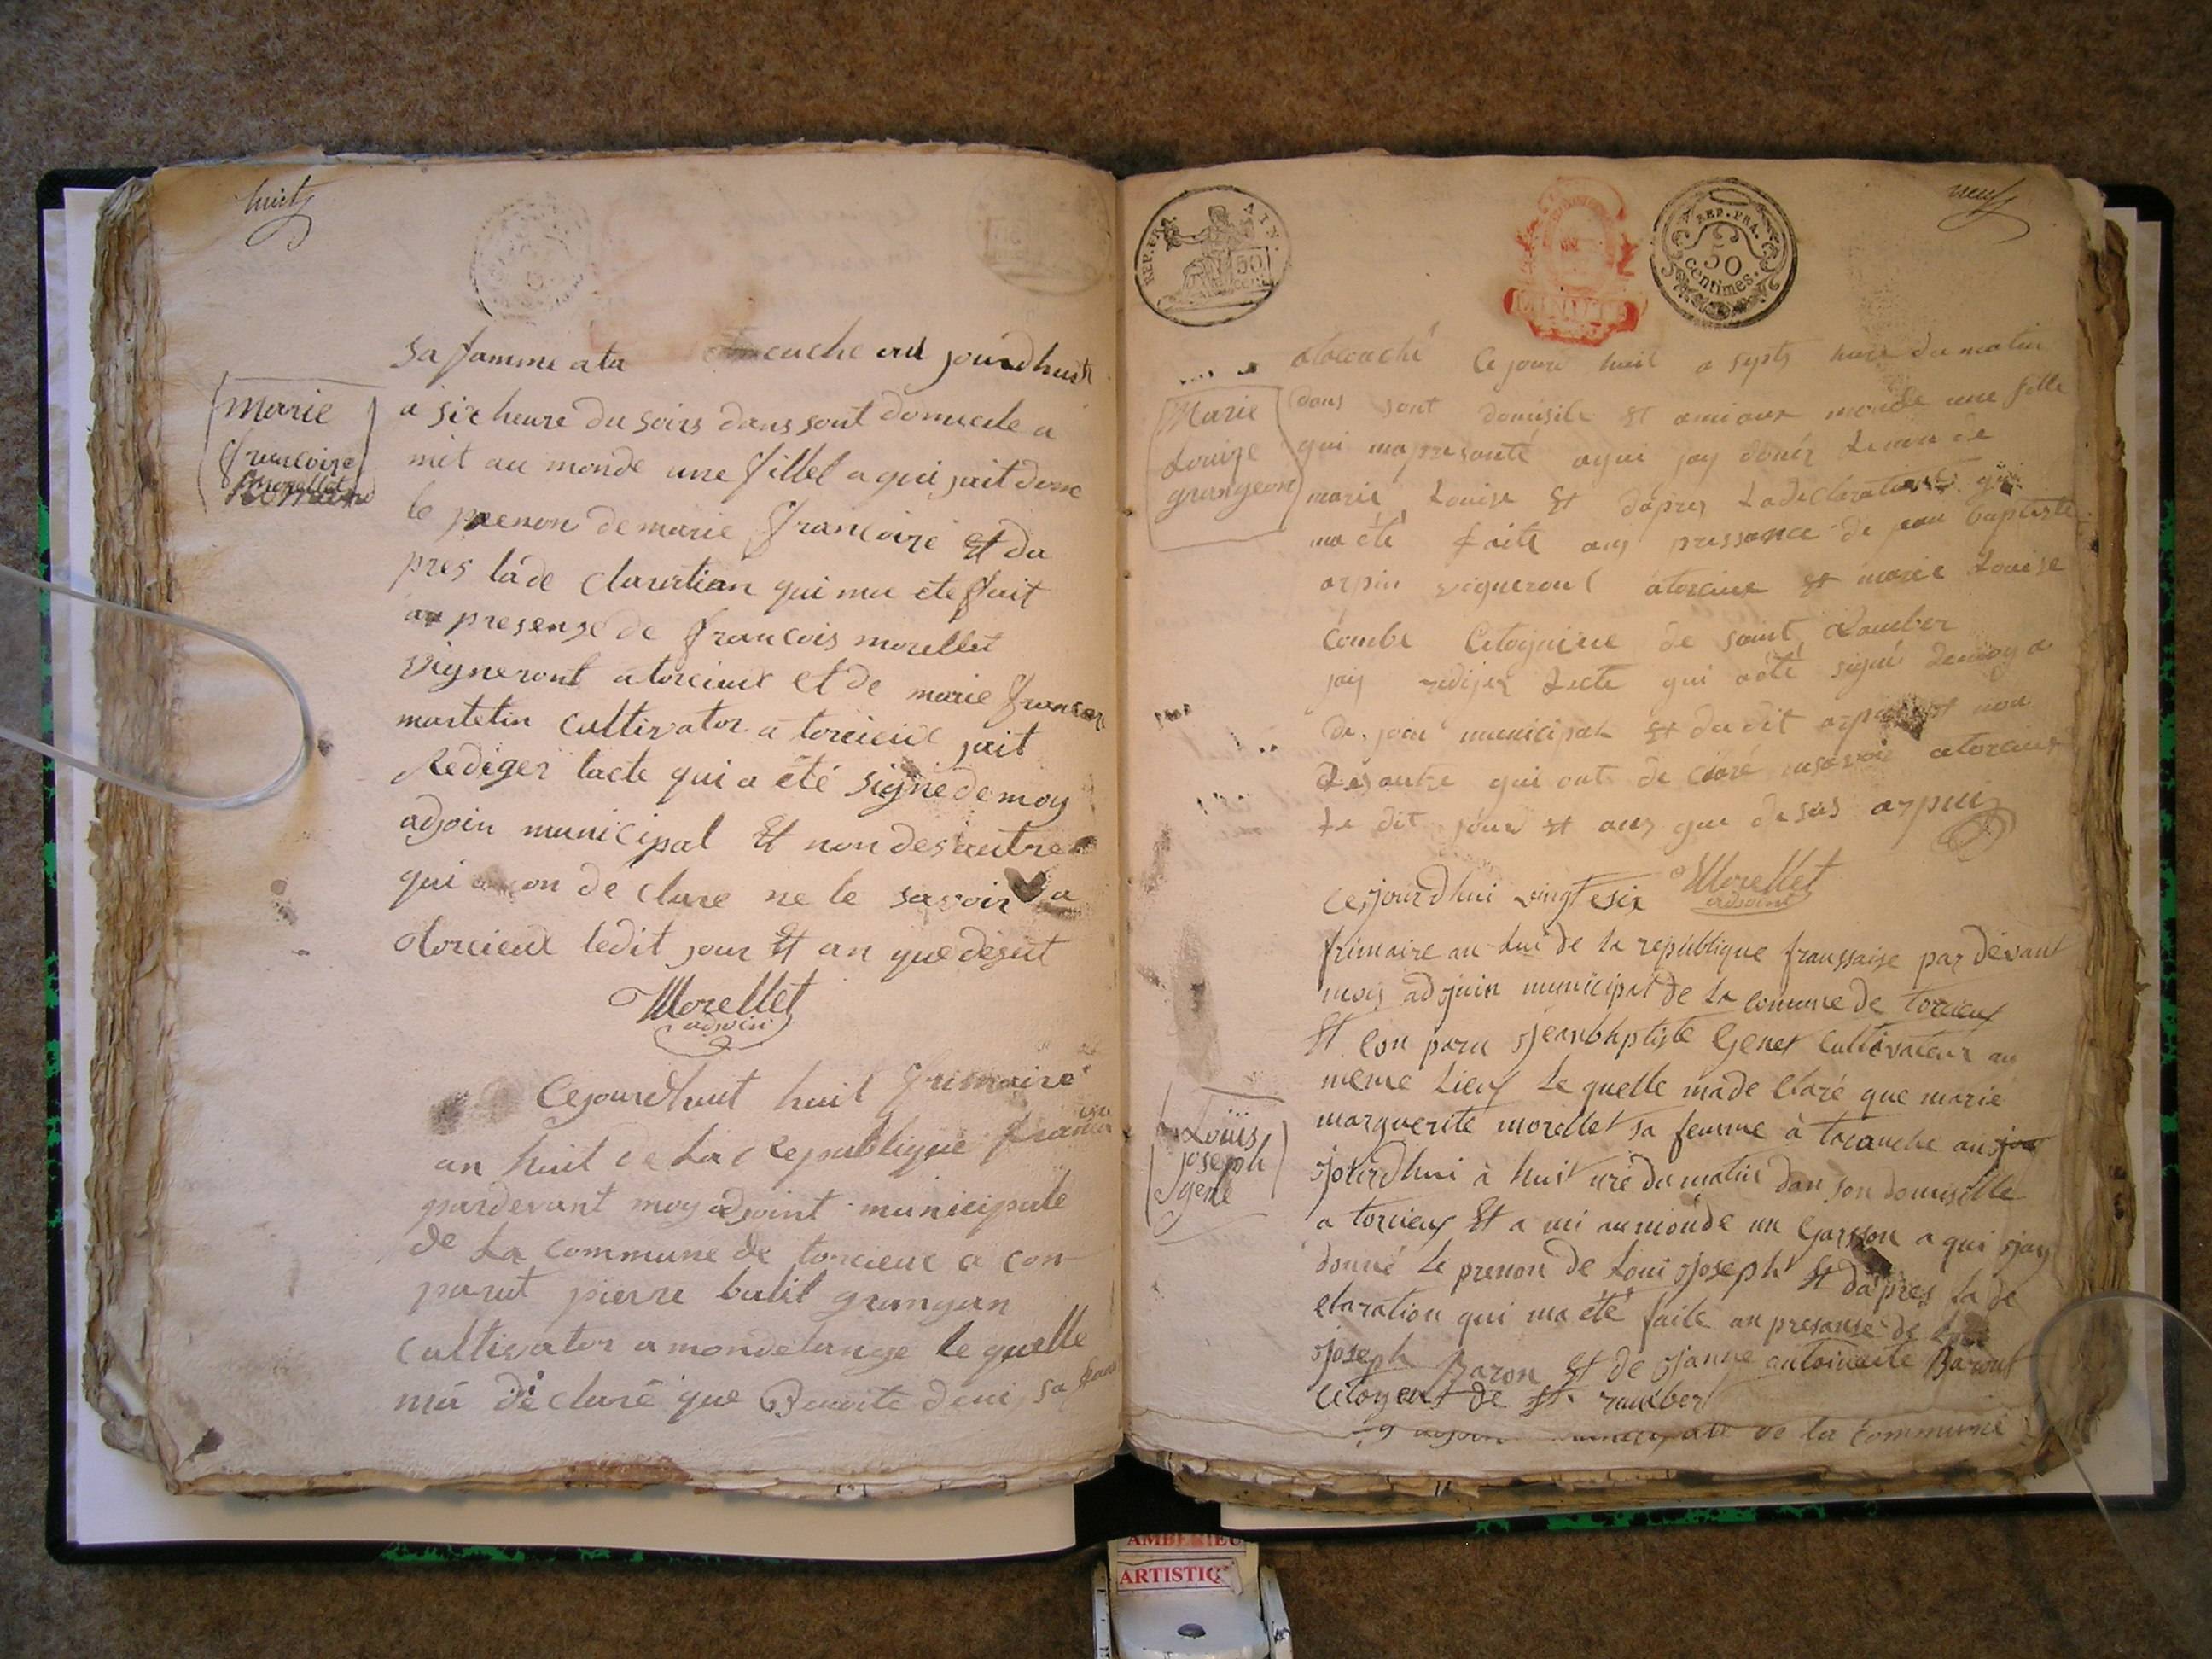 huit
sa famme ata cuche aud jourdhuit
a six heure du soirs dans sont domicile a
mit au monde une fillel a qui jait done
le prenon de marie francoise Et da
pres la de claration qui ma ete fait
an presense de francois morellet
vigneront a torcieux et de marie francois
martetin cultivator a torcieux jait
Rediger lacte qui a été signe de moy
adjoin municipal Et non des autre
qui on de clare ne le savoir a
torcieux ledit jour Et an que desut
Morellet
adjoin
Marie
francoise
morellet
Cejourdhuit huit frimaire
an huit de La Republique
pardevant moy adjoint municipale
de La Commune de torcieux a con
parut pierre balit grangon
Cultivator a mondelange le quelle
ma de claré que Benoite deni sa
neuf
REP. FRA. AIN.
50
cent.
REP. FRA.
50
centimes.
atorcaché Ce jourd huit a sept heure du matin
dans sont domisile Et amiaux monde une fille
qui mapresanté aqui jay donér Le non de
marie Louise Et dapres La declaration qui
ma été faite any pressance de jean baptiste
arpin vigneront atorcieux Et marie Louise
Combe Citoyniene de saint Ramber
jay redijer Lecte qui aété signé demoy a
de join municipal Et du dit arpin Et non
des autre qui ont de claré atorcieux
Le dit jour Et any que desus arpin
Morellet
adjoint
Marie
Louize
grangeon
Cejourdhui vingt esix
frimaire an huit de la république franssaise par devant
moy adjoin municipal de la comune de torcieux
Et Con paru jeanbhptiste Genet Cultivateur au
meme Lieux Le quelle made claré que marie
marguerite morellet sa femme à tacouche au
jourdhui à huit ure du matin dan son domisille
a torcieux Et a mi au monde un Garsson a qui jay
donné Le prenon de Loui joseph Et dapres La de
claration qui ma été faite an presanse de
joseph Baron Et de janne antoinaite Baront
Citoyent de st. rambert
municipale de la Commune
Loüis
joseph
gene
AMBERIEU
ARTISTIQ